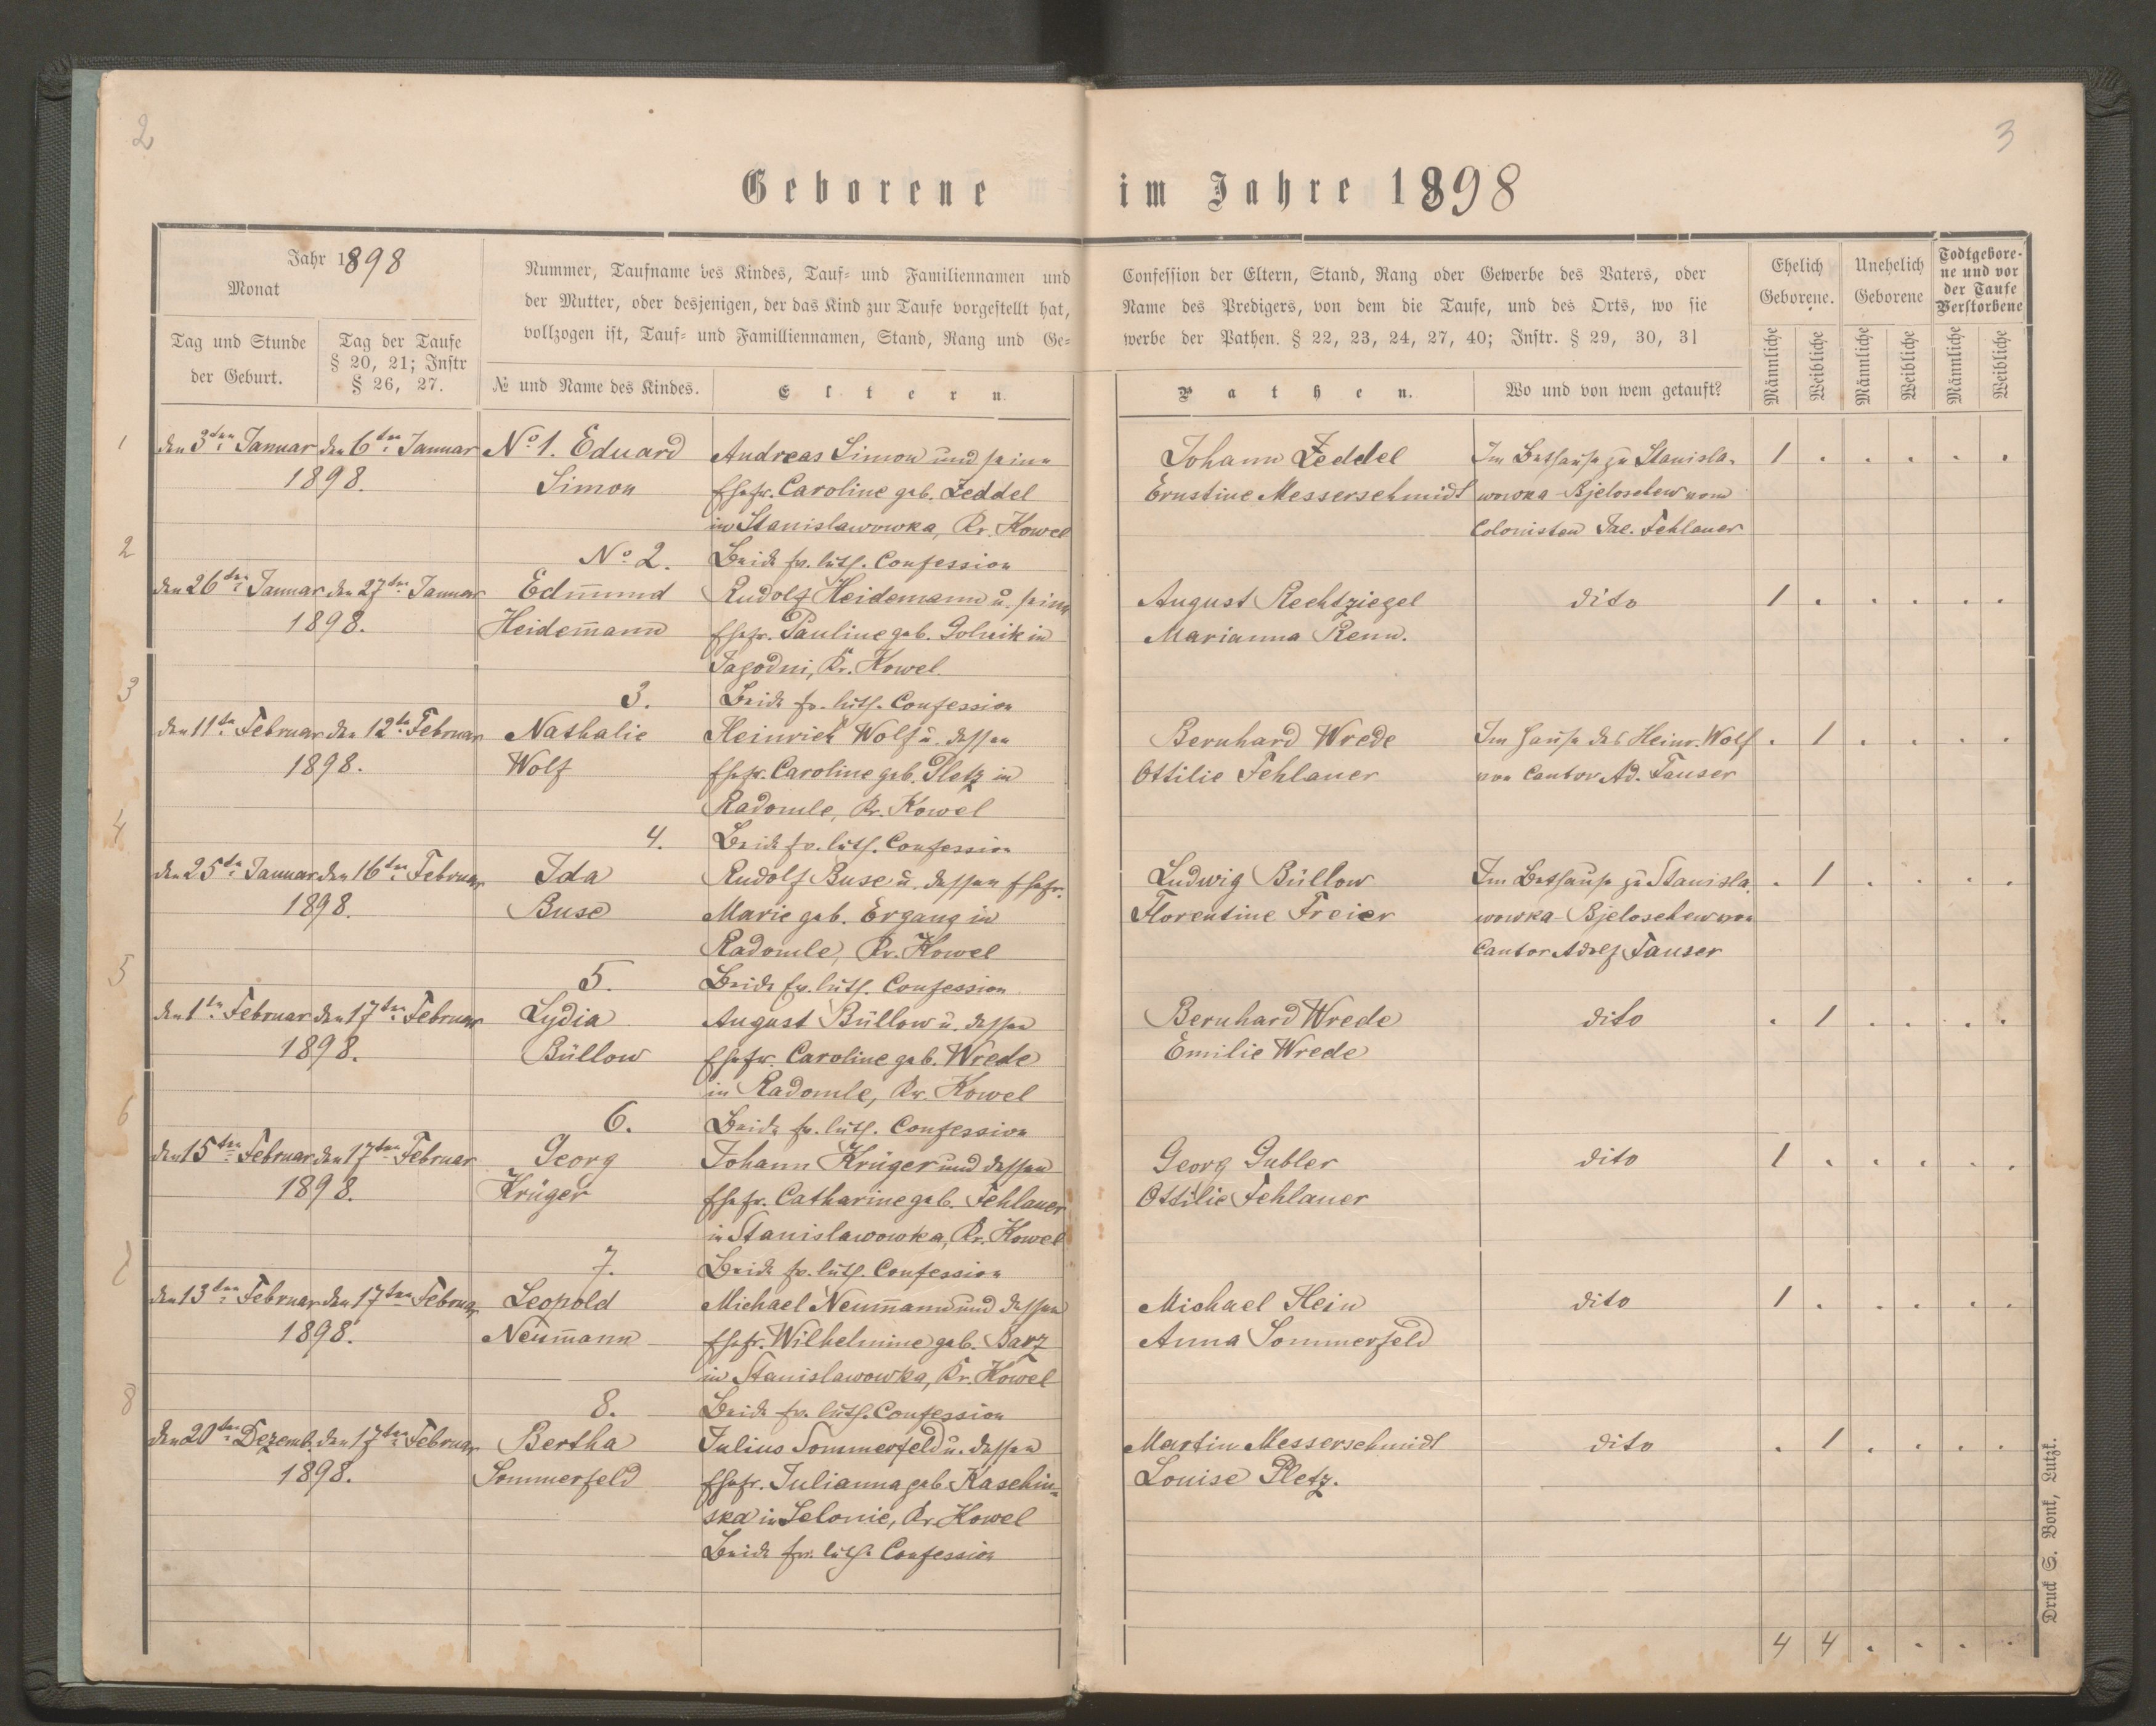 2
3
Geborene im Jahre 1898
Jahr 1898
Monat
Tag und Stunde der Geburt.
Tag der Taufe § 20, 21; Instr § 26, 27.
Nummer, Taufname des Kindes, Tauf- und Familiennamen und
der Mutter, oder desjenigen, der das Kind zur Taufe vorgestellt hat,
vollzogen ist, Tauf- und Familliennamen, Stand, Rang und Ge-
№ und Name des Kindes.
Eltern.
Confession der Eltern, Stand, Rang oder Gewerbe des Vaters, oder
Name des Predigers, von dem die Taufe, und des Orts, wo sie
werbe der Pathen. § 22, 23, 24, 27, 40; Instr. § 29, 30, 31
Pathen.
Wo und von wem getauft?
Ehelich Geborene.
Unehelich Geborene
Todtgeborene und vor der Taufe Verstorbene
Männliche Weibliche Männliche Weibliche Männliche Weibliche
1
den 3ten Januar den 6ten Januar No 1. Eduard Andreas Simon und seine
1898. Simon Ehefr. Caroline geb. Zeddel
in Stanislawowka, Kr. Kowel
Beide ev. luth. Confession
Johann Zeddel Im Bethause zu Stanisla- 1 . . . . .
Ernstine Messerschmidt wowka-Bjeloschew vom
Colonisten Jac. Fehlauer
2
No 2.
den 26ten Januar den 27ten Januar Edmund Rudolf Heidemann u. seine
1898. Heidemann Ehefr. Pauline geb. Golnik in
Jagodni, Kr. Kowel.
Beide ev. luth. Confession
August Rechtziegel dito 1 . . . . .
Marianna Renn.
3
3.
den 11ten Februar den 12ten Februar Nathalie Heinrich Wolf u. dessen
1898. Wolf Ehefr. Caroline geb. Pletz in
Radomle, Kr. Kowel
Beide ev. luth. Confession
Bernhard Wrede Im Hause des Heinr. Wolf . 1 . . . .
Ottilie Fehlauer von Cantor Ad. Tauser
4
4.
den 25ten Januar den 16ten Februar Ida Rudolf Buse u. dessen Ehefr.
1898. Buse Marie geb. Ergang in
Radomle, Kr. Kowel
Beide ev. luth. Confession
Ludwig Büllow Im Bethause zu Stanisla- . 1 . . . .
Florentine Freier wowka-Bjeloschew von
Cantor Adolf Tauser
5
5.
den 1ten Februar den 17ten Februar Lydia August Büllow u. dessen
1898. Büllow Ehefr. Caroline geb. Wrede
in Radomle, Kr. Kowel
Beide ev. luth. Confession
Bernhard Wrede dito . 1 . . . .
Emilie Wrede
6
6.
den 15ten Februar den 17ten Februar Georg Johann Krüger und dessen
1898. Krüger Ehefr. Catharine geb. Fehlauer
in Stanislawowka, Kr. Kowel
Beide ev. luth. Confession
Georg Gubler dito 1 . . . . .
Ottilie Fehlauer
7
7.
den 13ten Februar den 17ten Februar Leopold Michael Neumann und dessen
1898. Neumann Ehefr. Wilhelmine geb. Barz
in Stanislawowka, Kr. Kowel
Beide ev. luth. Confession
Michael Hein dito 1 . . . . .
Anna Sommerfeld
8
8.
den 20ten Dezemb. den 17ten Februar Bertha Julius Sommerfeld u. dessen
1898. Sommerfeld Ehefr. Julianna geb. Kaschin-
ska in Selonie, Kr. Kowel
Beide ev. luth. Confession
Martin Messerschmidt dito . 1 . . . .
Louise Pletz.
4 4 . . . .
Druck S. Bonk, Lutzk.